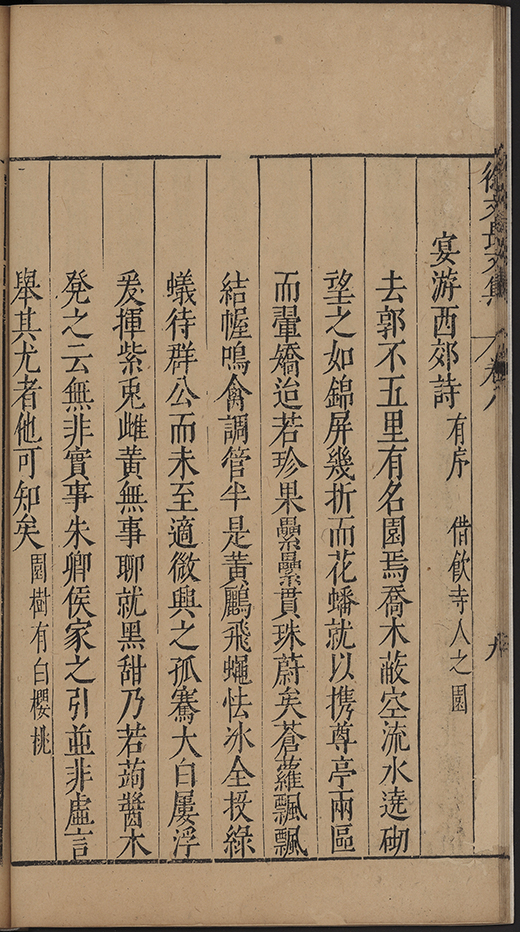 徐文長文集 卷八 九
宴游西郊詩 有序 借飲寺人之園
去郭不五里有名園焉喬木蔽空流水遶砌
望之如錦屏幾折而花蟠就以携尊亭兩區
而翬矯迨若珍果纍纍貫珠蔚矣蒼蘿飄飄
結幄鳴禽調管半是黃鸝飛蠅怯冰全投綠
蟻待群公而未至適微興之孤騫大白屢浮
爰揮紫兎雌黃無事聊就黑甜乃若蒟醬木
凳之云無非實事朱卿侯家之引並非虛言
舉其尤者他可知矣 園樹有白櫻桃